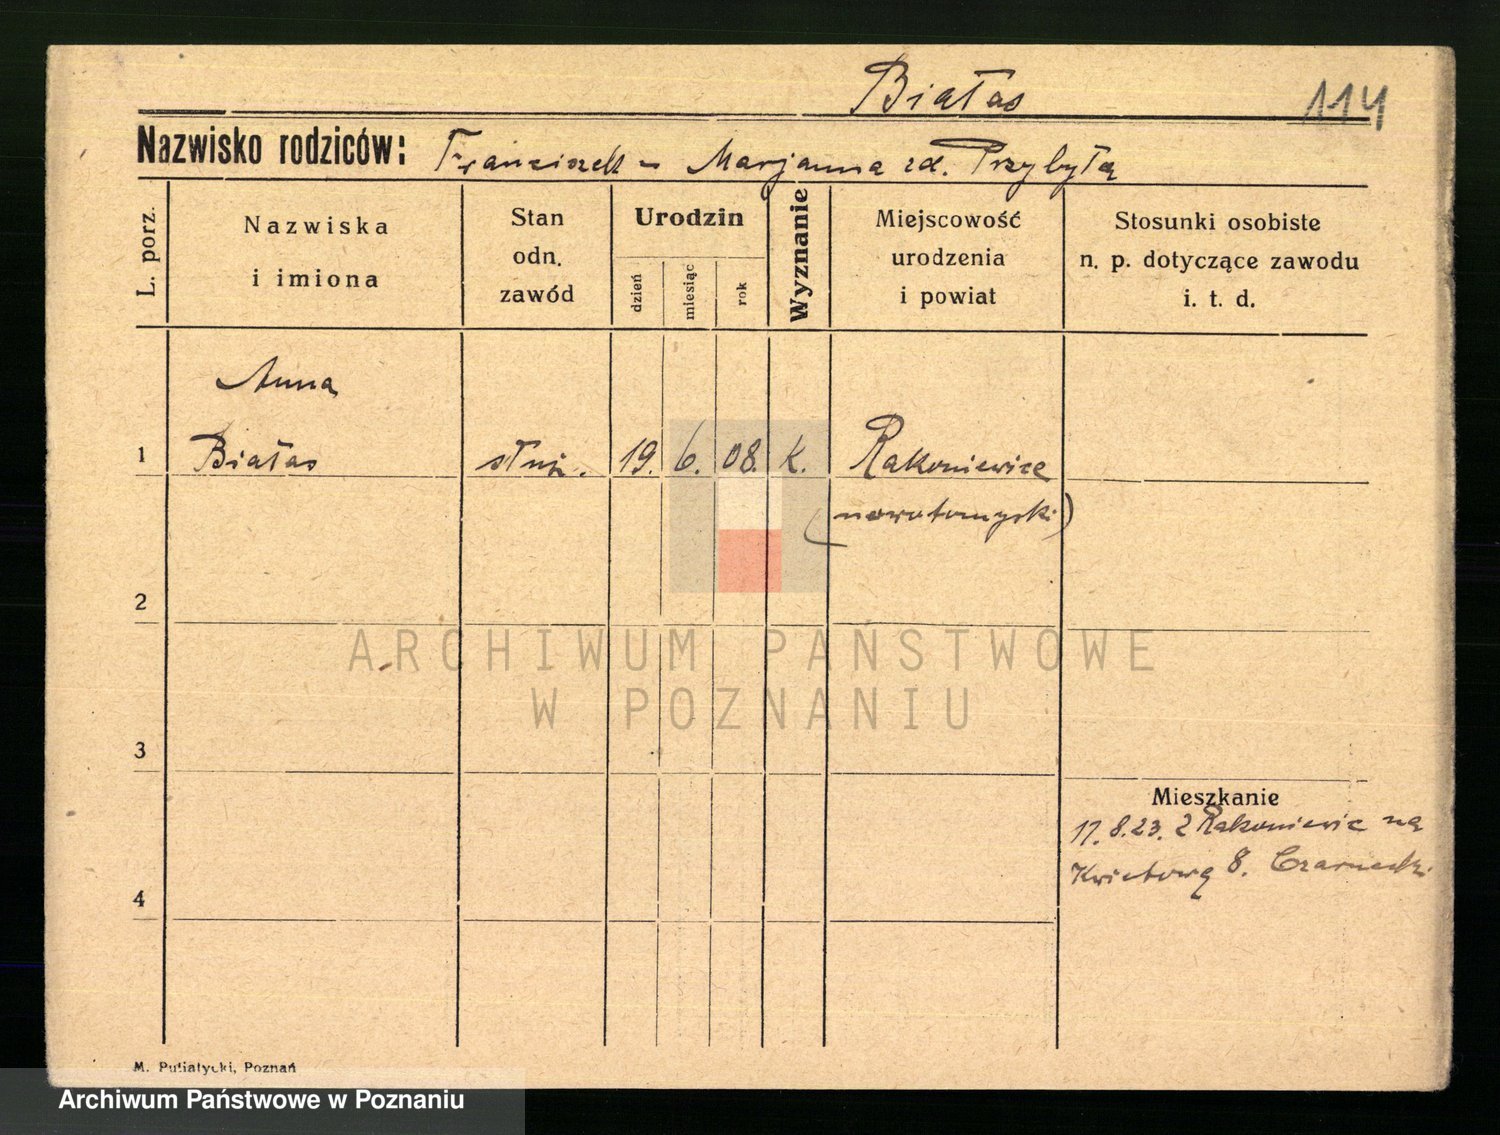 Białas
114
Nazwisko rodziców: Franciszek - Marjanna zd. Przybyła
L. porz.
Nazwiska
i imiona
Stan
odn.
zawód
Urodzin
dzień
miesiąc
rok
Wyznanie
Miejscowość
urodzenia
i powiat
Stosunki osobiste
n. p. dotyczące zawodu
i. t. d.
Anna
1 Białas służ. 19. 6. 08. k. Rakoniewice
(nowotomyski)
2
3
4
Mieszkanie
17.8.23. z Rakoniewic na
Kwiatową 8. Czarnecki
M. Putiatycki, Poznań
ARCHIWUM PAŃSTWOWE
W POZNANIU
Archiwum Państwowe w Poznaniu